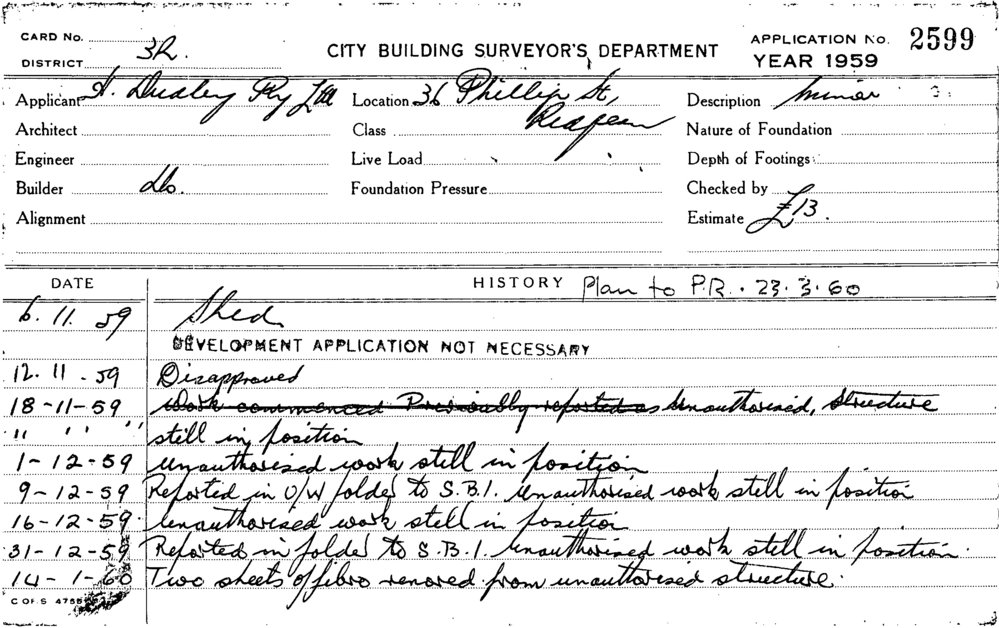 CARD No.
DISTRICT 3R.
CITY BUILDING SURVEYOR'S DEPARTMENT
APPLICATION No. 2599
YEAR 1959
Applicant H. Dudley Pty Ltd
Location 36 Phillip St,
Redfern
Description Minor
Architect
Class
Nature of Foundation
Engineer
Live Load
Depth of Footings
Builder do.
Foundation Pressure
Checked by
Alignment
Estimate £13.
DATE
HISTORY Plan to P.R. . 23.3.60
6.11.59 Shed
DEVELOPMENT APPLICATION NOT NECESSARY
12.11.59 Disapproved
18-11-59 Work commenced Previously reported as Unauthorised, structure
" " " still in position
1-12-59 Unauthorised work still in position
9-12-59 Reported in O/W folder to S.B.I. Unauthorised work still in position
16-12-59 Unauthorised work still in position
31-12-59 Reported in folder to S.B.I. Unauthorised work still in position.
14-1-60 Two sheets of fibro removed from unauthorised structure.
C OF S 4755